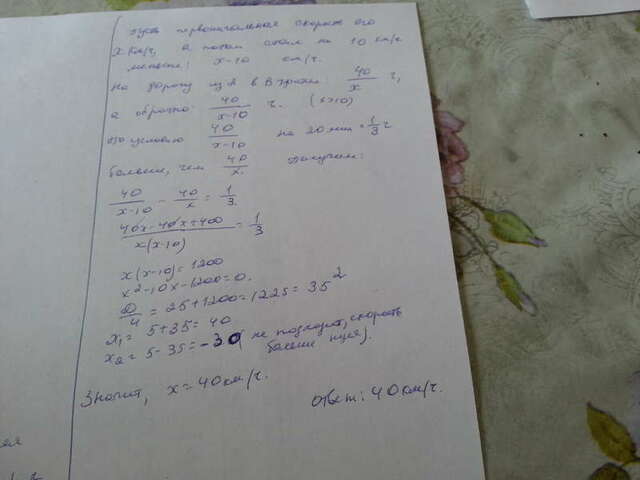 Пусть первоначальная скорость его
x км/ч, а потом стал на 10 км/ч
меньше: x-10 км/ч.
На дорогу из A в B тратил 40/x ч,
а обратно 40/(x-10) ч. (x>10)
По условию 40/(x-10) на 20 мин = 1/3 ч
больше, чем 40/x. Получим:
40/(x-10) - 40/x = 1/3
(40x-40x+400)/(x(x-10)) = 1/3
x(x-10)=1200
x²-10x-1200=0.
D/4 = 25+1200=1225=35²
x₁= 5+35=40
x₂= 5-35=-30 (не подходит, скорость
больше нуля).
Значит, x=40км/ч.
Ответ: 40км/ч.
ая